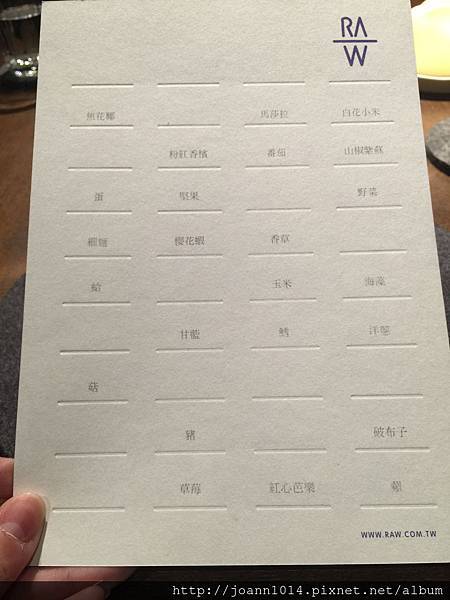 RA
W
魚花椰 馬莎拉 白花小米
粉紅香檳 番茄 山椒紫蘇
蛋 堅果 野菜
櫻花蝦 香草
蛤 玉米 海藻
甘藍 鱈 洋蔥
菇
豬 破布子
草莓 紅心芭樂 蘋
WWW.RAW.COM.TW
http://joann1014.pixnet.net/album